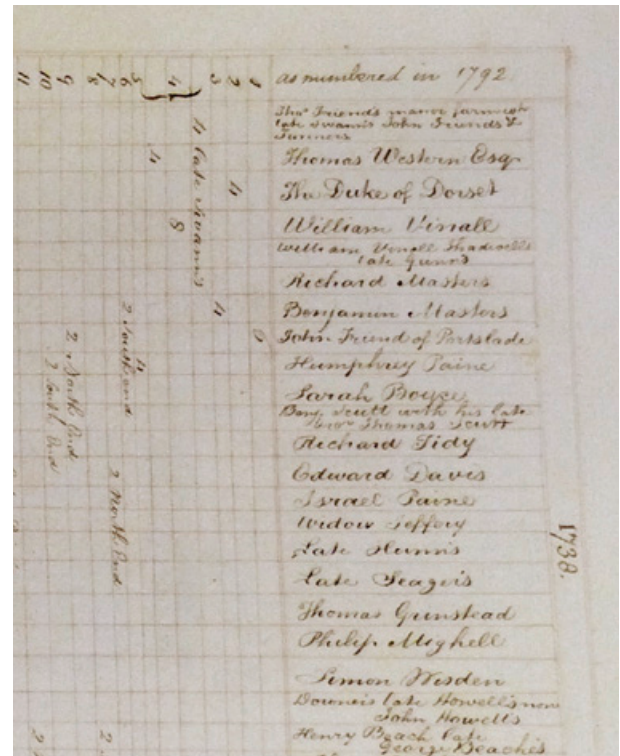 as numbered in 1792
1 2 3 4 5 6 7 8 9 10 11
Thos Friends manor farm
late Swann's John Friends &
Turners
Thomas Western Esqr
The Duke of Dorset
William Vinall
William Vinall Shadwells
late Gunn's
Richard Masters
Benjamin Masters
John Friend of Portslade
Humphrey Paine
Sarah Boyce
Benj Scutt with his late
Thomas Scutt
Richard Tidy
Edward Davis
Israel Paine
Widow Jeffery
Late Hunn's
Late Seager's
Thomas Grinstead
Philip Mighell
Simon Wisden
Downer's late Howell's now
John Howell's
Henry Beach late
George Beache's
1738.
4 late Swann's
4
4
8
4
6
4
2 South end
2 North End
2 South End
2 North End
2
2